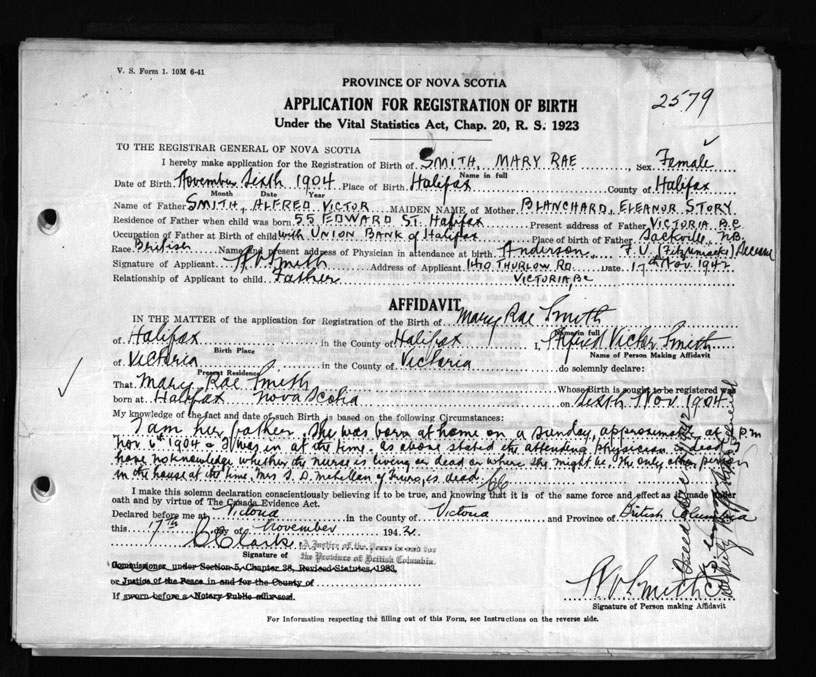 V. S. Form 1. 10M 6-41
PROVINCE OF NOVA SCOTIA
2579
APPLICATION FOR REGISTRATION OF BIRTH
Under the Vital Statistics Act, Chap. 20, R. S. 1923
TO THE REGISTRAR GENERAL OF NOVA SCOTIA
I hereby make application for the Registration of Birth of SMITH, MARY RAE, Sex Famale
Name in full
Date of Birth November Sixth 1904 Place of Birth Halifax County of Halifax
Month Date Year
Name of Father SMITH, ALFRED VICTOR MAIDEN NAME of Mother BLANCHARD, ELEANOR STORY
Residence of Father when child was born 55 EDWARD ST. Halifax Present address of Father VICTORIA B.C
Occupation of Father at Birth of child with UNION BANK of Halifax Place of birth of Father Sackville, N.B.
Race British Name and present address of Physician in attendance at birth Anderson, F. V.
Signature of Applicant A V Smith Address of Applicant 1470 THURLOW RD. Date 17th Nov. 1942
Relationship of Applicant to child Father VICTORIA, BC
AFFIDAVIT
IN THE MATTER of the application for Registration of the Birth of Mary Rae Smith
Name in full
of Halifax in the County of Halifax I, Alfred Victor Smith
Birth Place Name of Person Making Affidavit
of Victoria in the County of Victoria do solemnly declare:
Present Residence
That Mary Rae Smith Whose Birth is sought to be registered was
born at Halifax Nova Scotia on Sixth Nov. 1904
My knowledge of the fact and date of such Birth is based on the following Circumstances:
I am her father. She was born at home on a Sunday, approximately at P.M
Nov 6th 1904 & I was in at the time. As above stated the attending physician is dead
have no knowledge whether the nurse is living or dead or where she might be. The only other person
in the house at the time, Mrs of Truro, is dead. 66
I make this solemn declaration conscientiously believing it to be true, and knowing that it is of the same force and effect as if made under
oath and by virtue of The Canada Evidence Act.
Declared before me at Victoria in the County of Victoria and Province of British Columbia
this 17th day of November 1942.
C Clark
A Justice of the Peace in and for
the Province of British Columbia.
Signature of
Commissioner under Section 5, Chapter 38, Revised Statutes, 1923,
or Justice of the Peace in and for the County of
If sworn before a Notary Public affix seal.
A V Smith
Signature of Person making Affidavit
For Information respecting the filling out of this Form, see Instructions on the reverse side.